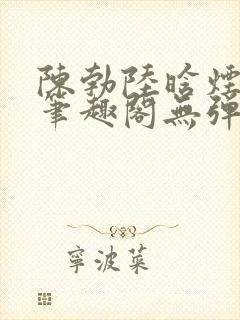 陳勃陸晗煙
筆趣閣無彈
寧波菜